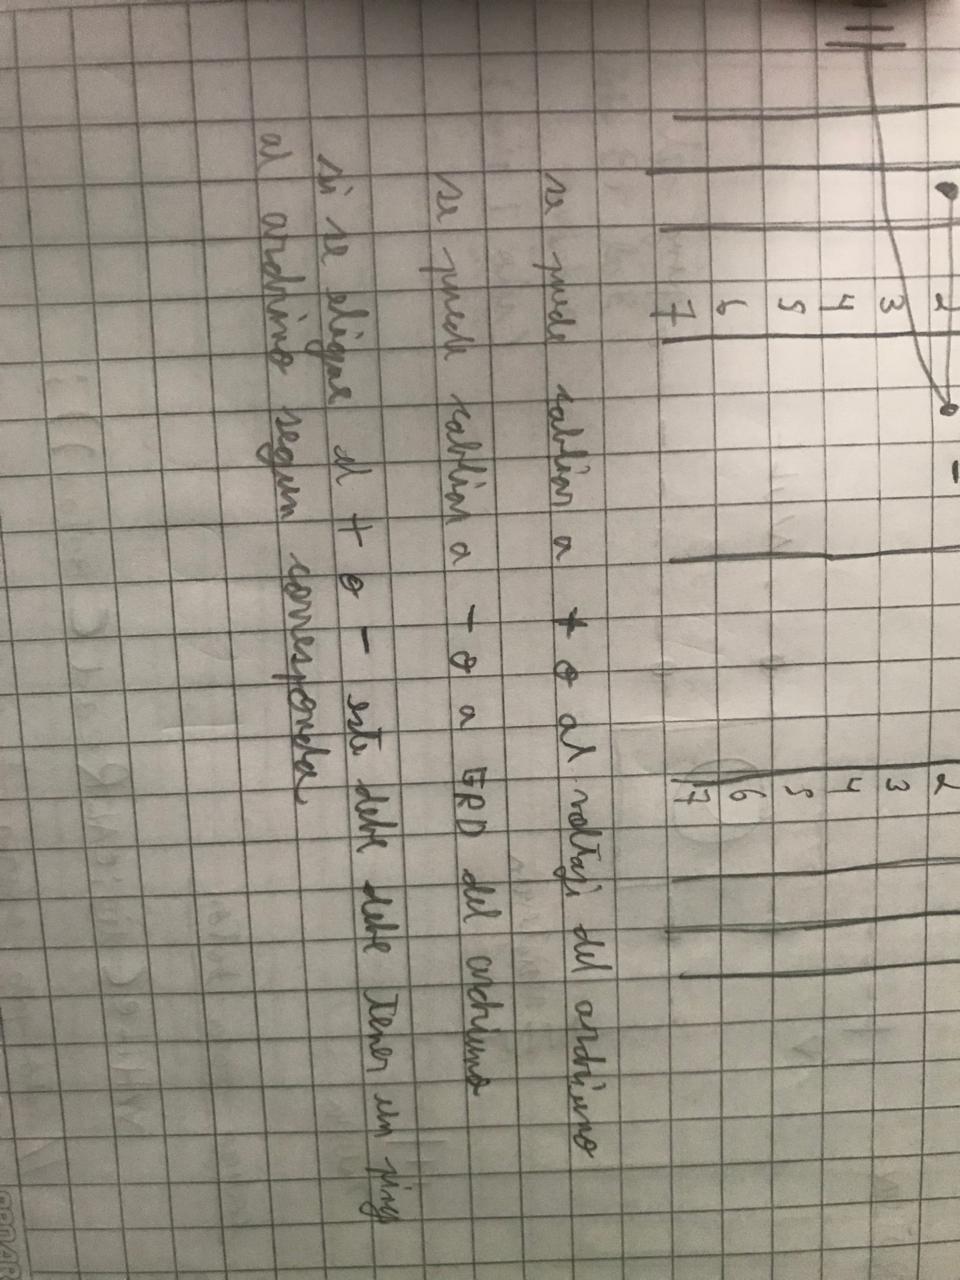 2 3 4 5 6 7
-
2 3 4 5 6 7
se puede cabliar a + o al voltaje del ardriuno
se puede cabliar a - o a GRD del ardriuno
si se eligue el + o - este debe debe tener un ping
al ardrino segun corresponda